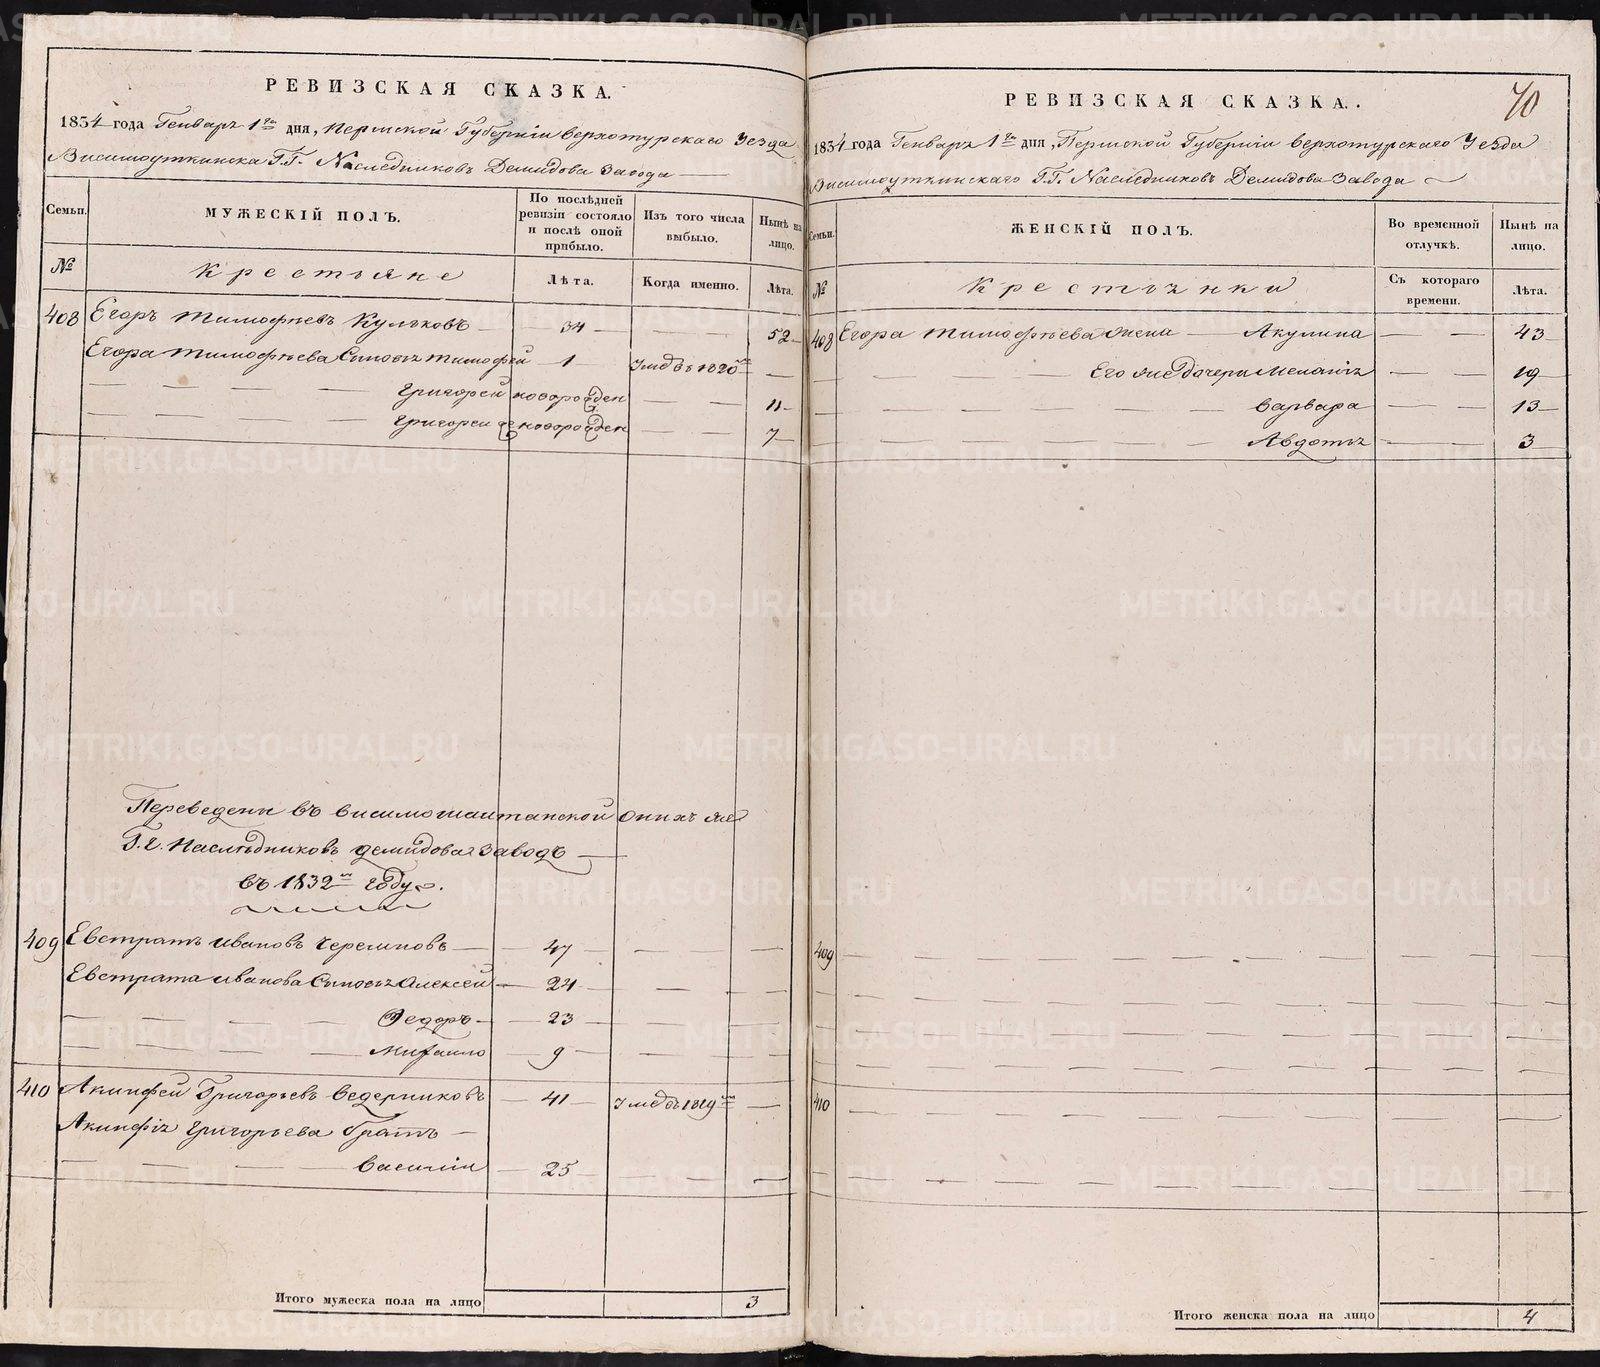 РЕВИЗСКАЯ СКАЗКА.
1834 года Генваря 1го дня, Пермской Губерніи Верхотурскаго Уезда
Висимоуткинска Г.Г. Наследниковъ Демидова Завода
Семьи.
МУЖЕСКІЙ ПОЛЪ.
По послѣдней ревизіи состояло и послѣ оной прибыло.
Изъ того числа выбыло.
Нынѣ на лицо.
№
Крестьяне
Лѣта.
Когда именно.
Лѣта.
408 Егоръ Тимофѣевъ Кульковъ 34 52
Егора Тимофѣева Сыновья Тимофей 1 Умеръ 1820
Григорей новорожден 11
Григорей 2й новорожден 7
Переведены въ висимошаитанской онихъ же
Г.Г. Наследниковъ Демидова Заводъ
въ 1832м году.
409 Евстратъ Ивановъ Черемновъ 47
Евстрата Иванова Сыновья Алексей 24
Федоръ 23
Михаило 9
410 Акинфей Григорьевъ Ведерниковъ 41 Умеръ 1819
Акинфія Григорьева братъ
Василій 25
Итого мужеска пола на лицо 3
70
РЕВИЗСКАЯ СКАЗКА.
1834 года Генваря 1го дня, Пермской Губерніи Верхотурскаго Уезда
Висимоуткинскаго Г.Г. Наследниковъ Демидова Завода
Семьи.
ЖЕНСКІЙ ПОЛЪ.
Во временной отлучкѣ.
Нынѣ на лицо.
№
Крестьянки
Съ котораго времени.
Лѣта.
408 Егора Тимофѣева жена Акулина 43
Его же дочери Меланія 19
Варвара 13
Авдотья 3
409
410
Итого женска пола на лицо 4
METRIKI.GASO-URAL.RU